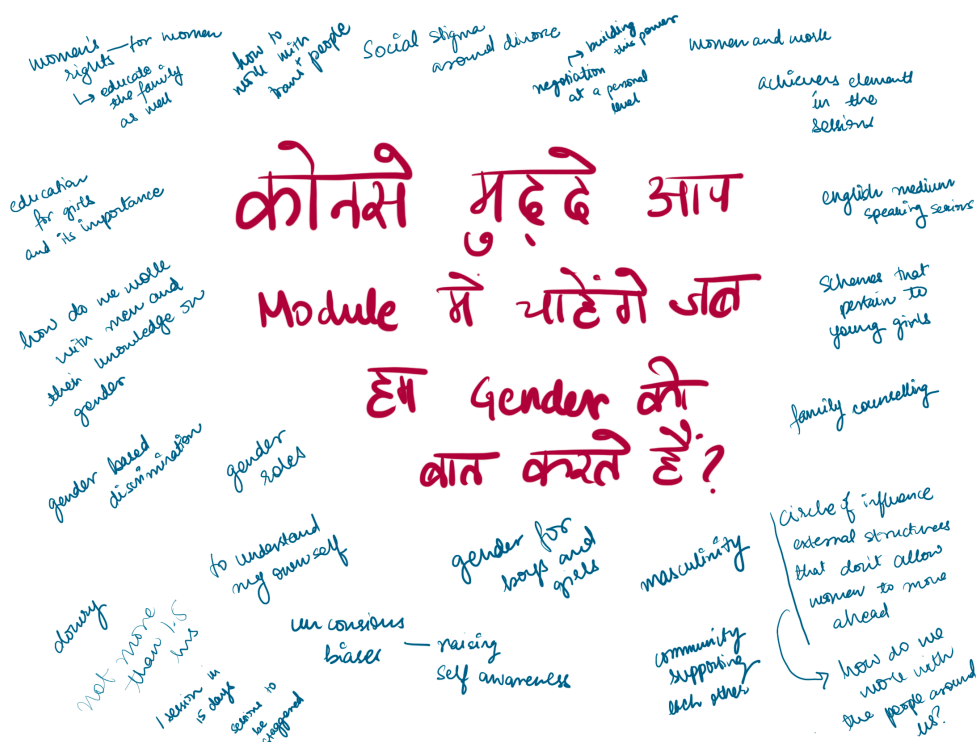 women's — for women
rights
↳ educate
the family
as well
how to
work with
trans* people
Social stigma
around divorce
negotiation → building
this power
at a personal
level
women and work
achievers elements
in the
sessions
education
for girls
and its importance
कोनसे मुद्दे आप
Module में चाहेंगे जब
हम Gender की
बात करते हैं?
english medium
speaking sessions
how do we work
with men and
their knowledge on
gender
Schemes that
pertain to
young girls
family counselling
gender based
discrimination
gender
roles
to understand
my own self
gender for
boys and
girls
masculinity
circle of influence
external structures
that don't allow
women to move
ahead
→ how do we
work with
the people around
us?
dowry
not more
than 1.5
hrs
1 session in
15 days
sessions to
be
staggered
unconsious
biases — raising
self awareness
community
supporting
each other